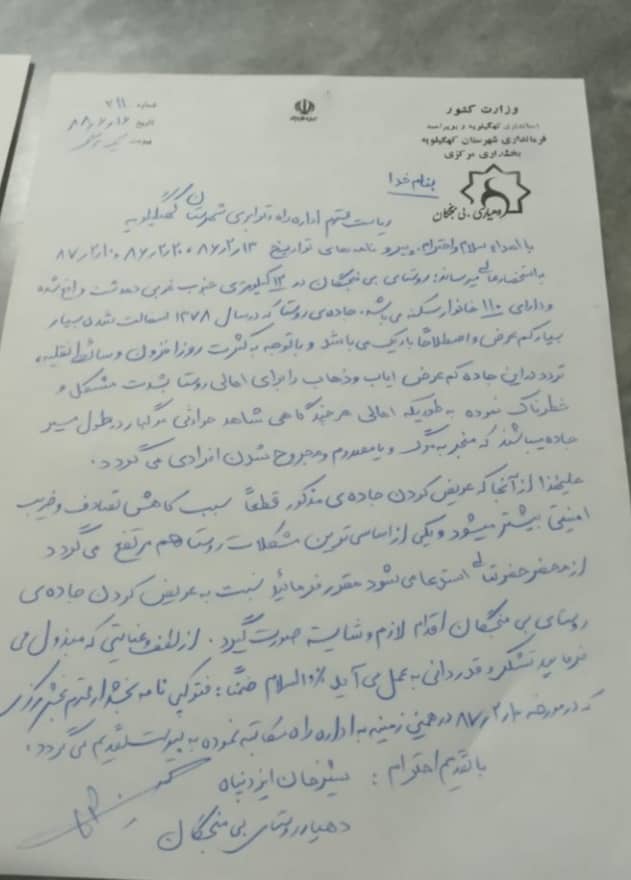 وزارت کشور
استانداری کهگیلویه و بویراحمد
فرمانداری شهرستان کهگیلویه
بخشداری مرکزی
دهیاری بی منجگان
شماره ۷۱۱
تاریخ ۸۸/۶/۱۶
پیوست
بنام خدا
ریاست محترم اداره راه و ترابری شهرستان کهگیلویه
با اهداء سلام و احترام، پیرو نامه های تواریخ ۸۶/۲/۱۳ ، ۸۶/۲/۲۰ ، ۸۷/۲/۱۰
به استحضار عالی میرساند: روستای بی منجگان در ۱۳ کیلومتری جنوب غربی دهدشت واقع شده
و دارای ۱۱۰ خانوار سکنه می باشد. جاده ی روستا که در سال ۱۳۷۸ آسفالت شده بسیار
بسیار کم عرض و اصطلاحاً باریک می باشد و با توجه به کثرت روز افزون وسائط نقلیه،
تردد در این جاده کم عرض ایاب و ذهاب را برای اهالی روستا بشدت مشکل و
خطرناک نموده به طوریکه اهالی هر چند گاهی شاهد حوادثی مرگبار در طول مسیر
جاده میباشند که منجر به مرگ و یا مصدوم و مجروح شدن افرادی می گردد.
علیهذا از آنجا که عریض کردن جاده ی مذکور قطعاً سبب کاهش تصادف و ضریب
امنیتی بیشتر میشود و یکی از اساسی ترین مشکلات روستا هم مرتفع می گردد
از محضر حضرتعالی استدعا می شود مقرر فرمائید نسبت به عریض کردن جاده ی
روستای بی منجگان اقدام لازم و شایسته صورت گیرد. از لطف و عنایتی که مبذول می
فرمایید تشکر و قدردانی به عمل می آید والسلام ضمناً: فتوکپی نامه بخشدار محترم بخش مرکزی
که در مورخه ۸۷/۲/۱۰ در همین زمینه به اداره راه مکاتبه نموده به پیوست تقدیم می گردد.
با تقدیم احترام: شیرخان ایزدپناه
دهیار روستای بی منجگان